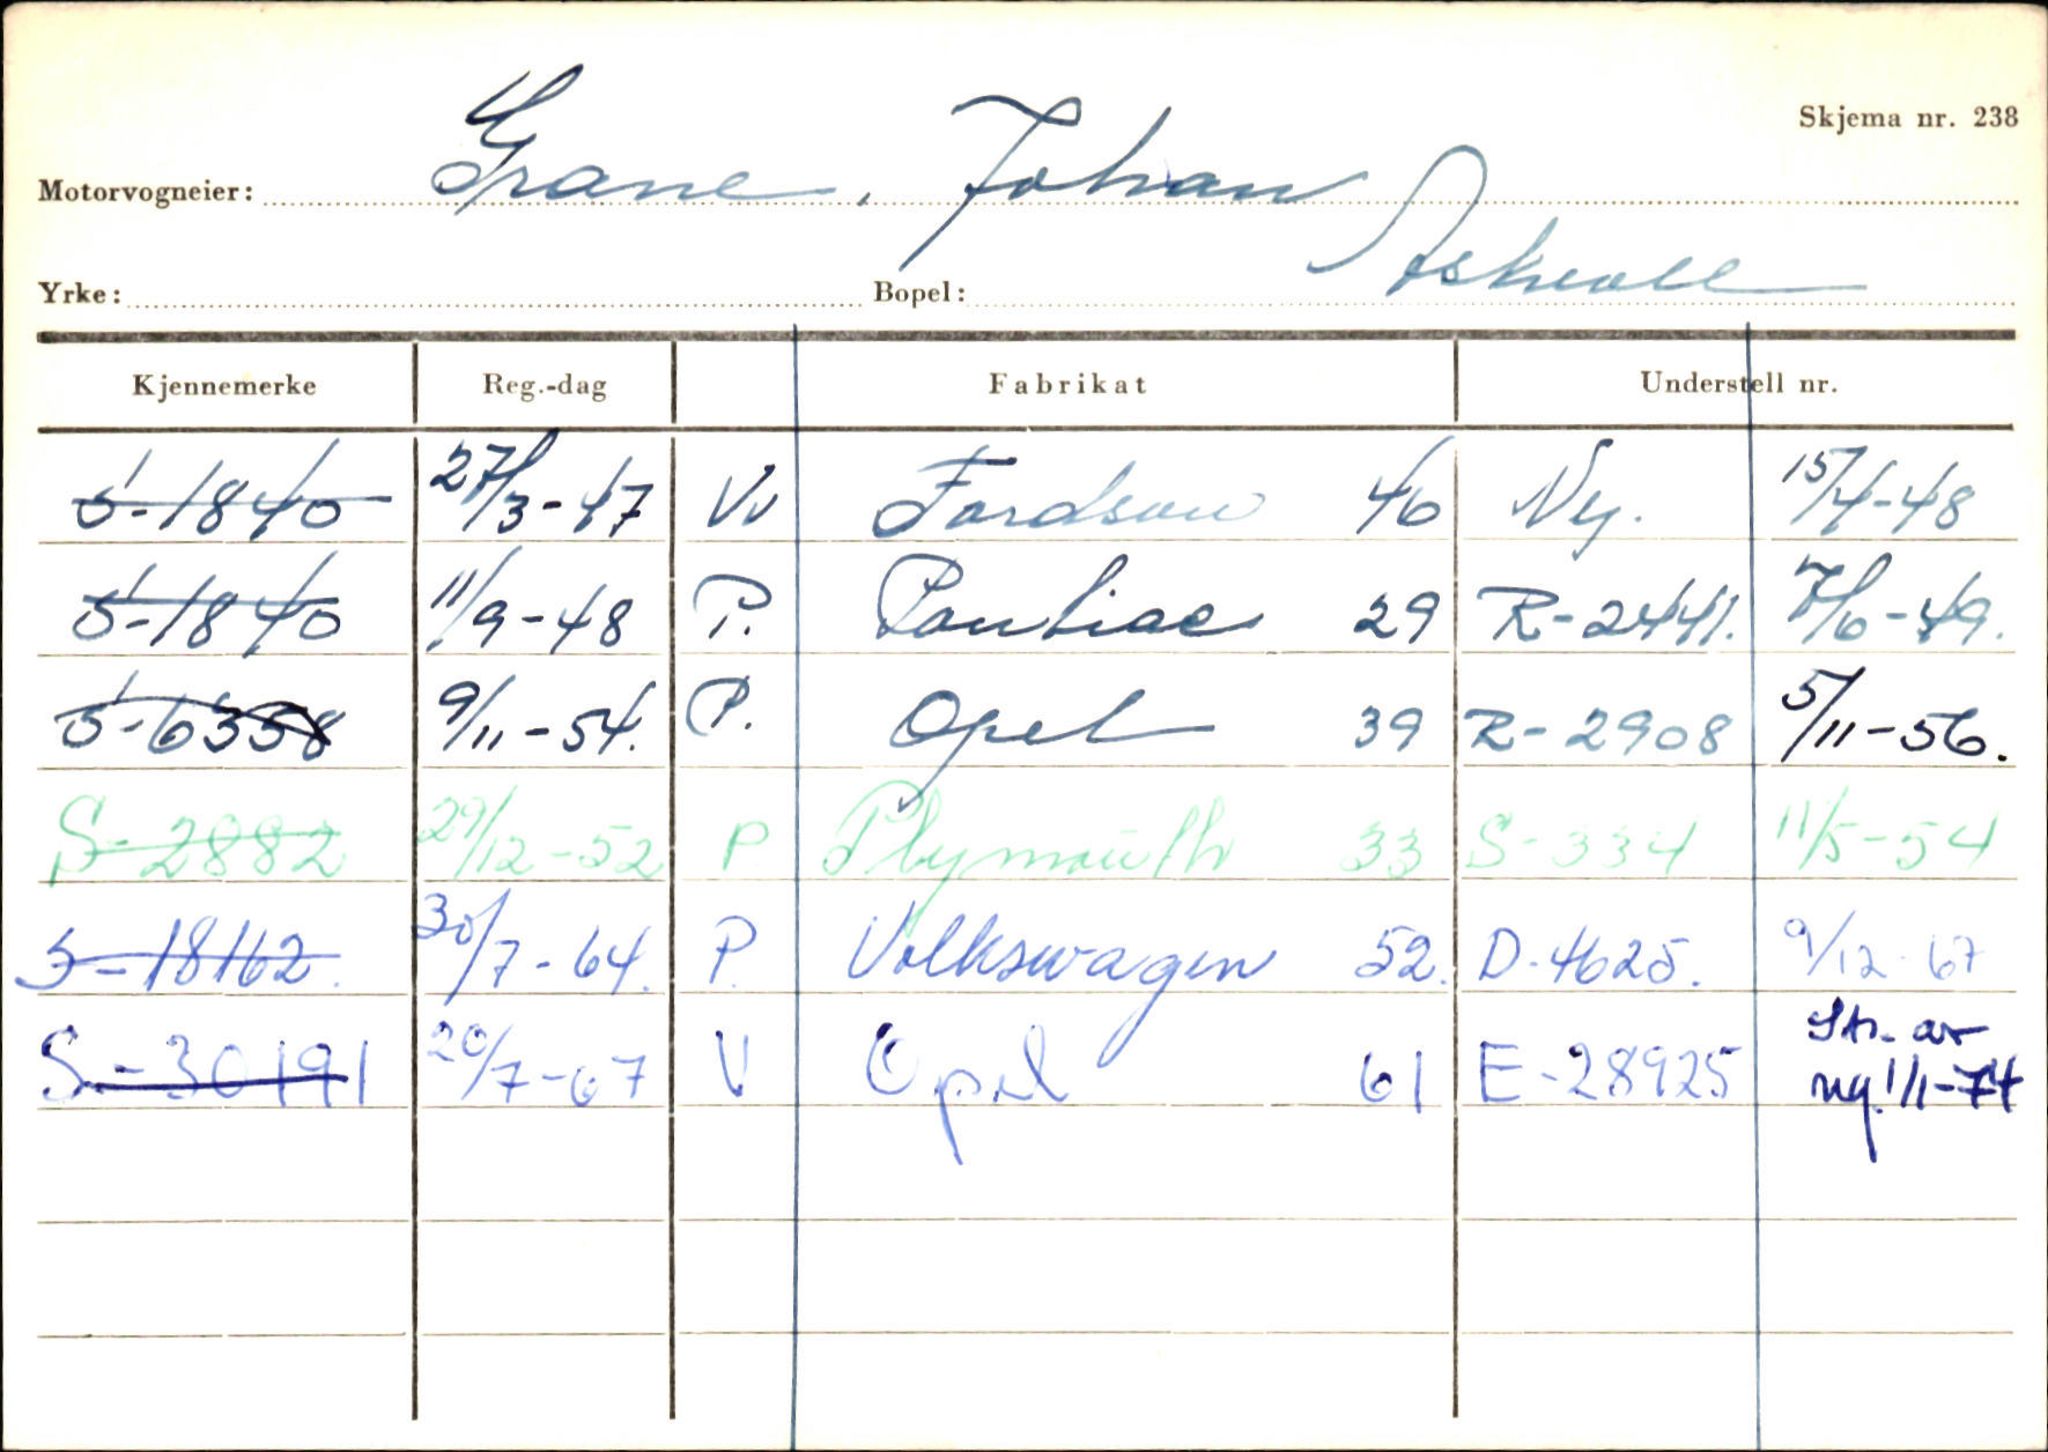 Skjema nr. 238
Motorvogneier: Grane, Johan
Yrke: Bopel: Askvoll
Kjennemerke Reg.-dag Fabrikat Understell nr.
S-1840 27/3-47 Vv Fordson 46 Ny. 15/4-48
S-1840 11/9-48 P. Pontiac 29 R-2441. 7/6-49.
S-6358 9/11-54. P. Opel 39 R-2908 5/11-56.
S-2882 29/12-52 P Plymouth 33 S-334 11/5-54
S-18162. 30/7-64. P. Volkswagen 52. D-4625. 9/12-67
S-30191 20/7-67 V Opel 61 E-28925 Str. av
reg. 1/1-74